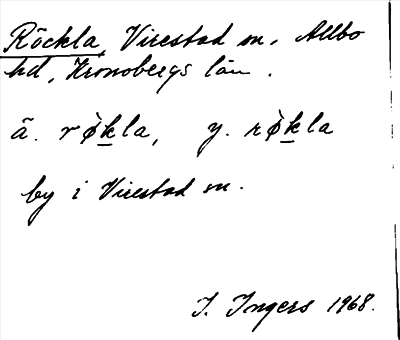 Röckla, Virestad sn, Allbo
hd, Kronobergs län.
ä. rø̀kla, y. rø̀kla
by i Virestad sn.
I. Ingers 1968.